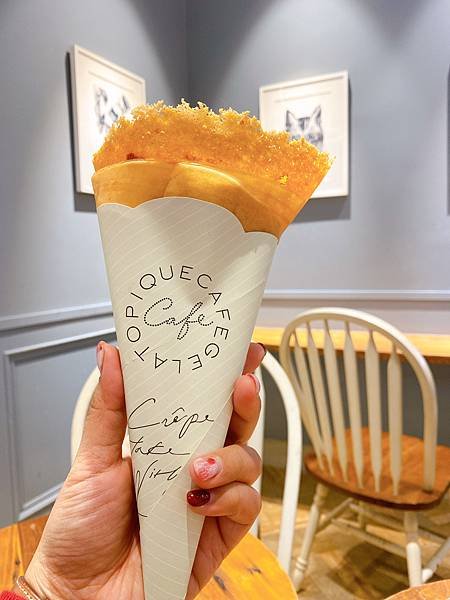 GELATO PIQUE CAFE
Café
Crêpe
take
With